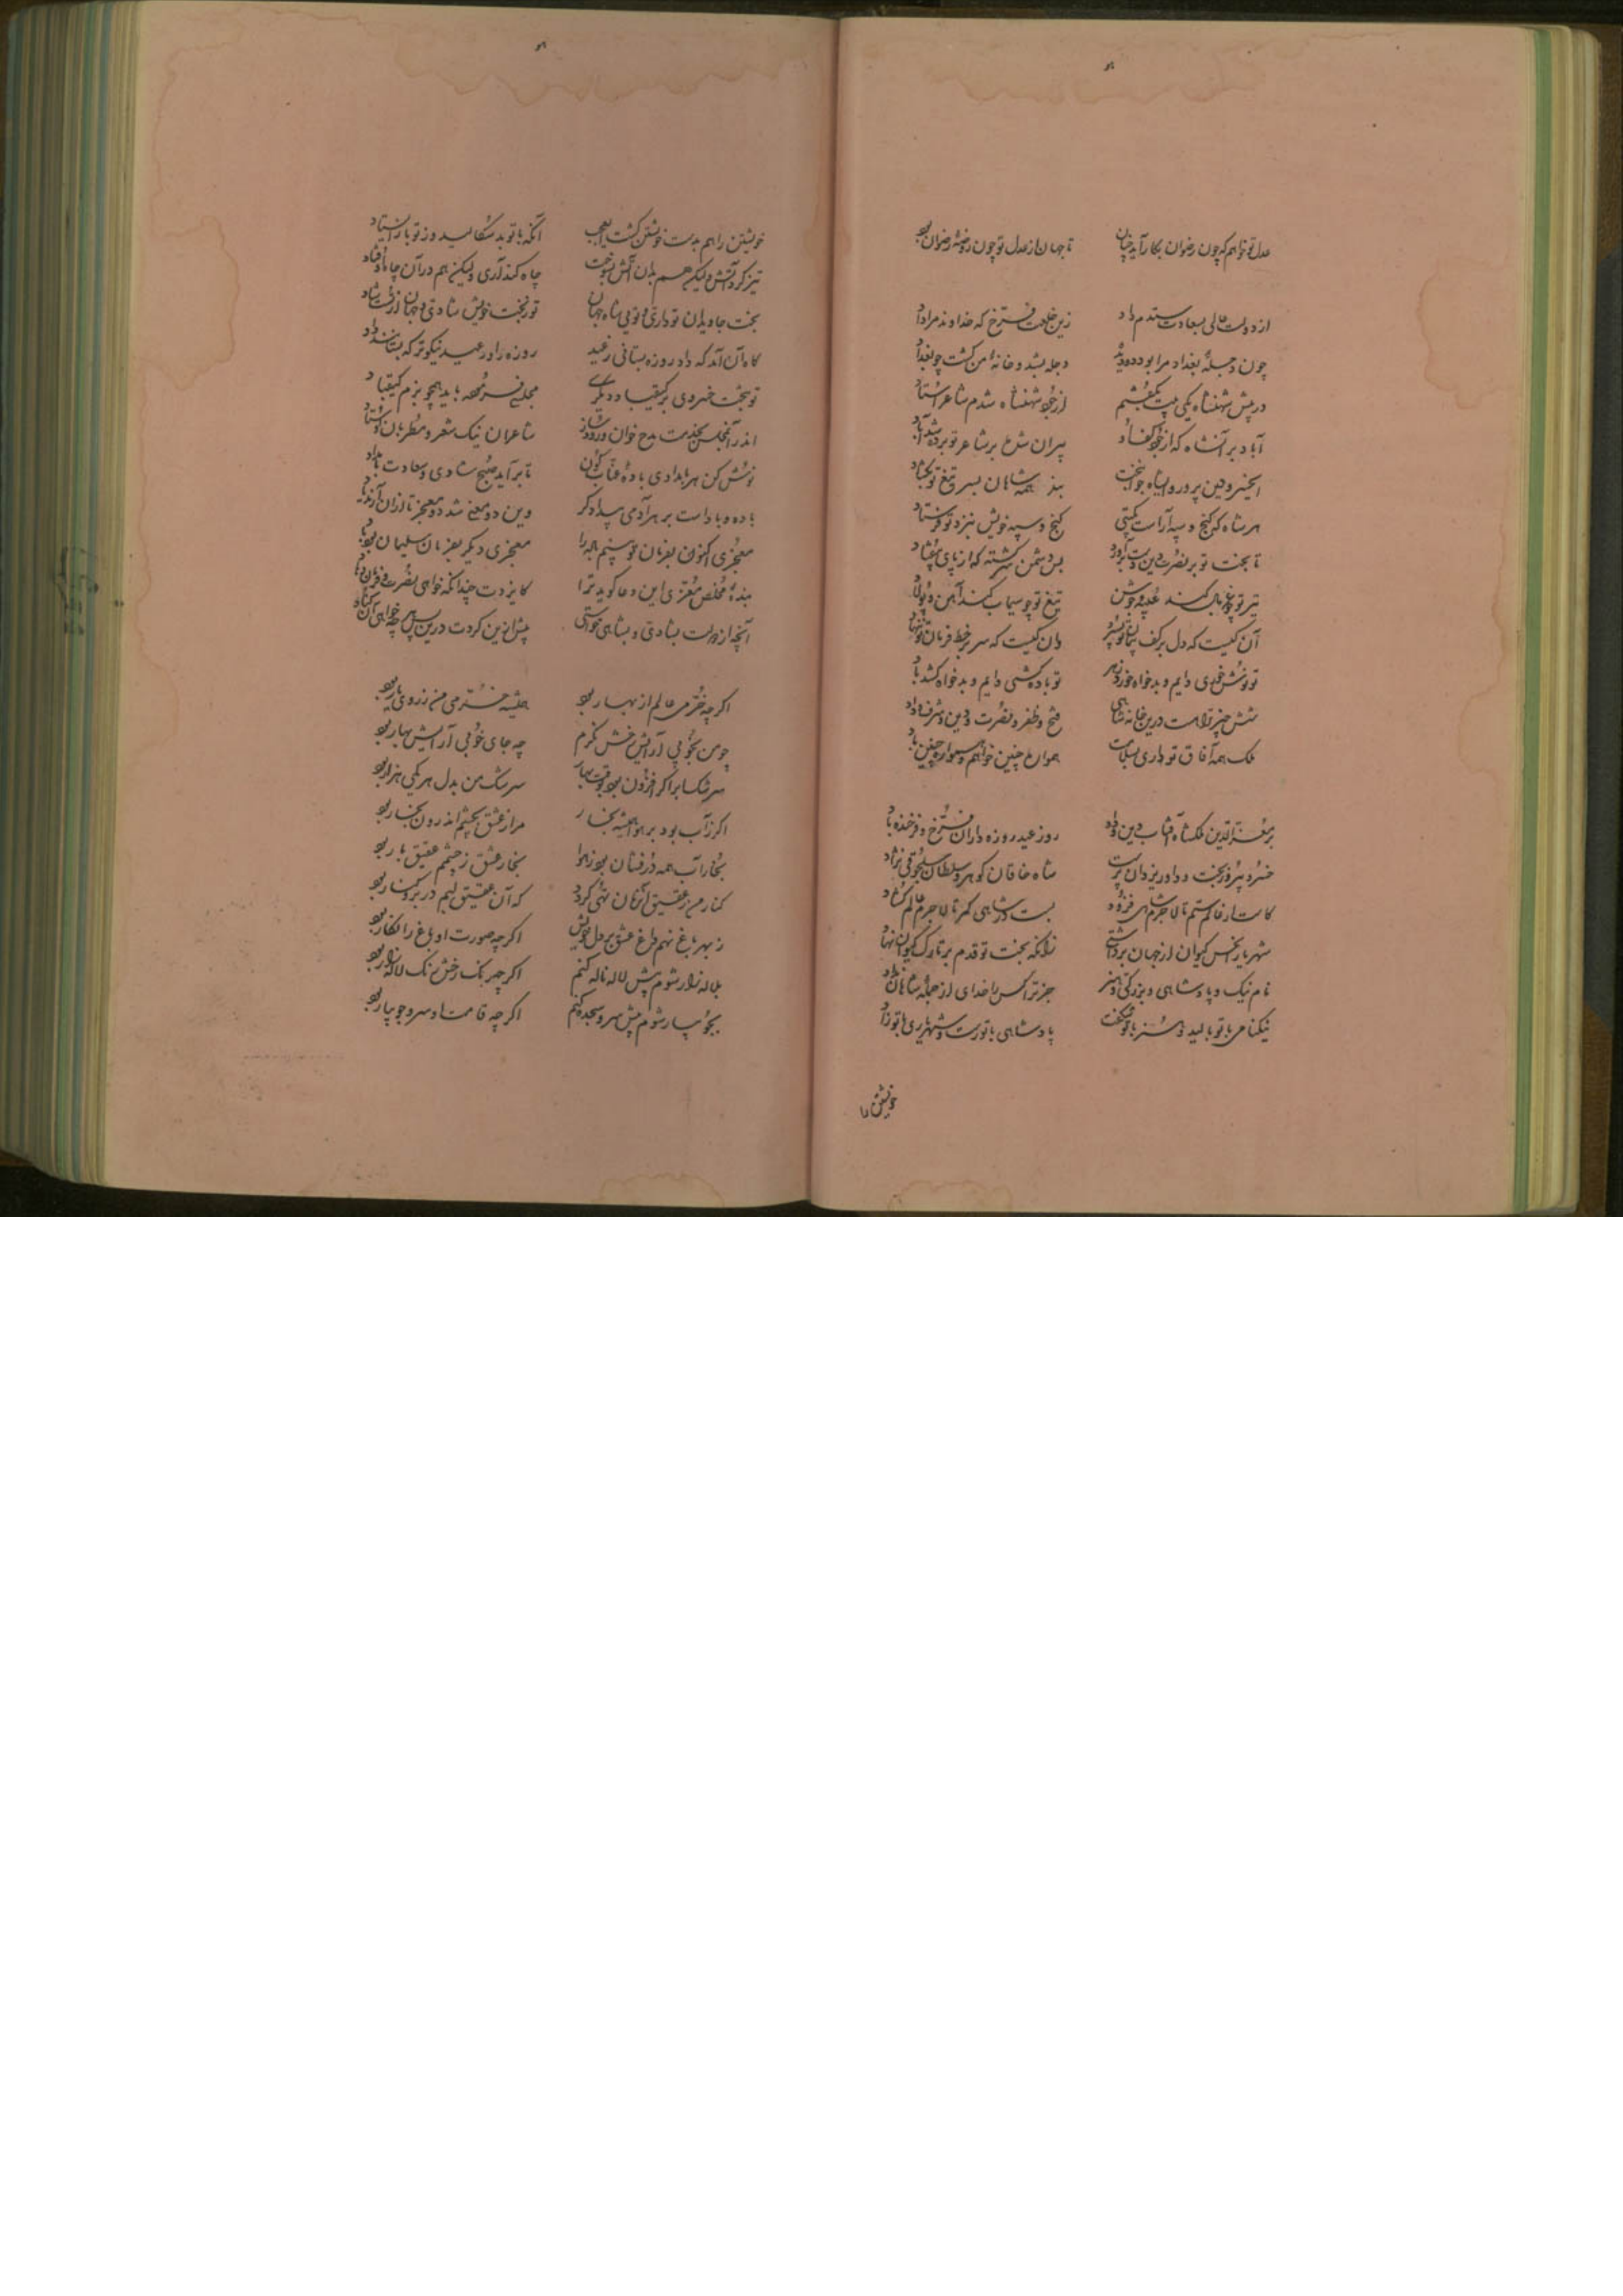 عدل تو خواهم که چون رضوان بکار آید چنان تا جهان از عدل تو چون روضهٔ رضوان بود
از دولت عالی بسعادت ستدم داد زین خلعت فرخ که خداوند مرا داد
چون دجلهٔ بغداد مرا بود دو دیده دجله بشد و خانه من گشت چو بغداد
در پیش شهنشاه یکی بیت بگفتم از جود شهنشاه شدم شاعر استاد
آباد بر آن شاه که از جود کف او پیران شدع بر شاعر تو بر شد آباد
ای خسرو دین پرور و ای شاه جوانبخت بند همه شاهان بسر تیغ تو بگشاد
هر شاه که گنج و سپه آراست بگیتی گنج و سپه خویش بنزد تو فرستاد
تا بخت تو بر نصرت دین دست برآورد بس دشمن سرگشته که از پای بیفتاد
تیر تو چو غربال کند غیبه و جوشن تیغ تو چو سیماب کند آهن و پولاد
آن کیست که دل بر کف پیمان تو نسپرد وان کیست که سر بر خط فرمان تو ننهاد
تو نوش خوری دایم و بدخواه خورد زهر تو باده کشی دایم و بدخواه کشد باد
شش چیز تراست درین خانه شاهی فتح و ظفر و نصرت و دین و شرف و داد
ملک همه آفاق تو داری بسلامت همواره چنین خواهم و همواره چنین باد
بر معز الدین ملکشاه آفتاب دین و داد روز عید روزه داران فرخ و فرخنده باد
خسرو پیروز بخت و داور یزدان پرست شاه خاقان گوهر و سلطان سلجوقی نژاد
کاست از عالم ستم تا لاجرم شاهی فزود بست در شاهی کمر تا لاجرم عالم گشاد
شهریارا نحس کیوان از جهان برداشتی زانکه بخت تو قدم بر تارک کیوان نهاد
نام نیک و پادشاهی و بزرگی و هنر جز ترا کس را خدای از جمله شاهان نداد
نیکنامی با تو بالید و هنر با تو شکفت پادشاهی با تو رست و شهریاری با تو زاد
خویشتن را
خویشتن را هم بدست خویشتن کشت ای عجب آنکه با تو بد سگالید و ز تو باز ایستاد
تیز کرد آتش ولیکن هم بدان آتش بسوخت چاه کند آری ولیکن هم در آن چاه اوفتاد
بخت جاویدان تو داری و تویی شاه جهان تو ز بخت خویش شادی و جهان از تست شاد
گاه آن آمد که داد روزه بستانی ز عید روزه را در عید نیکوتر که بستانند داد
تو ببخت خسروی بر کیقباد دیگری مجلس فرمود باید همچو بزم کیقباد
اندر آن مجلس بخدمت مدح خوان و رود ساز شاعران نیک شعر و مطربان اوستاد
نوش کن هر بامدادی بادهٔ عناب گون تا برآید صبح شادی و سعادت بامداد
باده و باد است بر هر آدمی پیدا دگر وین دو معنی شد دو معجز تا از آن آرند یاد
معجزی اکنون بفرمان تو بینم باده را معجزی دیگر بفرمان سلیمان بود باد
بندهٔ مخلص معزی این دعا گوید ترا کایزدت چندانکه خواهی نصرت و فرمان دهاد
آنچه از دولت بشادی و بشاهی خواستی پیش ازین کردت درین پس هر چه خواهی آن کناد
اگر چه خرمی عالم از بهار بود همیشه خرمی من ز روی یار بود
چو من بخوبی آرایش رخش نگرم چه جای خوبی آرایش بهار بود
سرشک ابر اگر افزون بود بوقت بهار سرشک من بدل هر یکی هزار بود
اگر ز آب بود بر هوا همیشه بخار مرا ز عشق بچشم اندرون بخار بود
بخار آب همه درفشان بود ز هوا بخار عشق ز چشمم عقیق بار بود
کنار من ز عقیق آن زمان تهی گردد که آن عقیق لبم در بر و کنار بود
ز بهر باغ نهم داغ عشق بر دل خویش اگر چه صورت او باغ را نگار بود
بلاله زار شوم پیش لاله ناله کنم اگر چه رنگ رخش رنگ لاله زار بود
بجویبار شوم پیش سرو سجده کنم اگر چه قامت او سرو جویبار بود